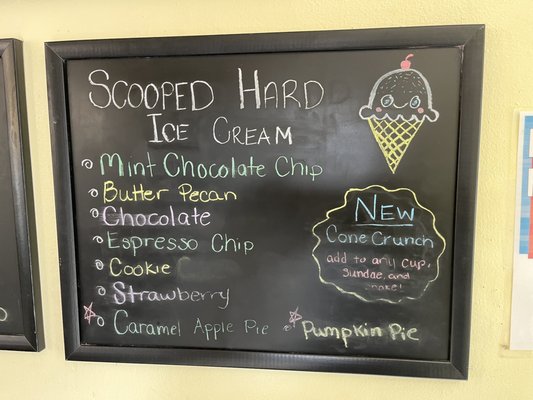 Scooped Hard
Ice Cream
Mint Chocolate Chip
Butter Pecan
Chocolate
Espresso Chip
Cookie
Strawberry
Caramel Apple Pie
Pumpkin Pie
New
Cone Crunch
add to any cup,
sundae, and
shake!